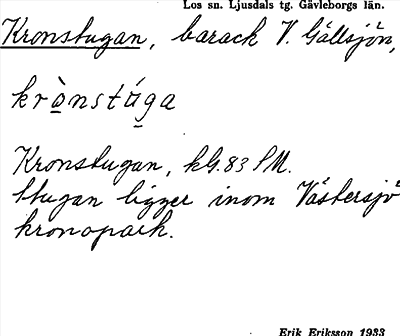 Los sn. Ljusdals tg. Gävleborgs län.
Kronstugan, barack V. Gällsjön,
krònstúga
Kronstugan, kG. 83 SM.
Stugan ligger inom Västersjö
kronopark.
Erik Eriksson 1933